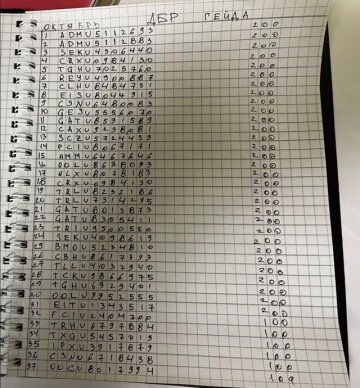 ОКТЯБРЬ ДБР ГЕЙДА 200
1 ADMU5112693 200
2 ADMU5112883 200
3 SEKU4906440 200
4 CRXU0984130 200
5 TGHU7025760 200
6 REYU4900887 200
7 CLHU8484791 200
8 EISU8044915 200
9 CSNU6480083 200
10 GESU5556070 200
11 GATU8591589 200
12 CAXU9298081 200
13 SCZU5724459 200
14 PCIU8067171 200
15 HMMU6467646 200
16 OOLU8638093 200
17 HLXU8078183 200
18 CRXU0984130 200
19 TRLU8232186 200
20 TRLU7314295 200
21 GATU8013873 200
22 GATU8305411 200
23 TRIU9500550 200
24 SEKU4098619 200
25 BMOU5234810 200
26 CBHU8617393 200
27 TLLU4037940 200
28 TCKU9866975 200
29 TGHU6929401 200
30 OOLU9952555 200
31 EITU1343517 200
32 FCIU2404700 200
33 TRHU6797884 100
34 TXGU5457019 100
35 IPXU3917879 100
36 CSNU6718438 100
37 OOCU8017243 100